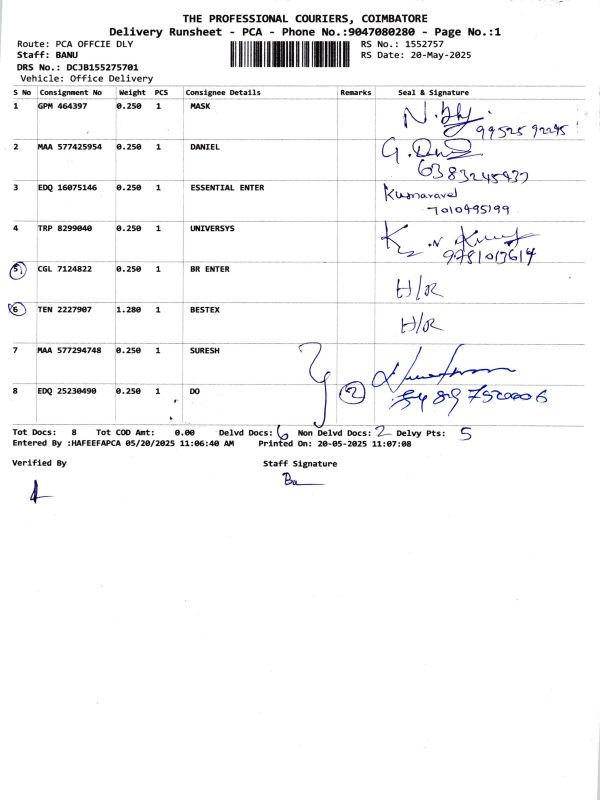 THE PROFESSIONAL COURIERS, COIMBATORE
Delivery Runsheet - PCA - Phone No.:9047080280 - Page No.:1
Route: PCA OFFCIE DLY RS No.: 1552757
Staff: BANU RS Date: 20-May-2025
DRS No.: DCJB155275701
Vehicle: Office Delivery
S No Consignment No Weight PCS Consignee Details Remarks Seal & Signature
1 GPM 464397 0.250 1 MASK
99525 92245
2 MAA 577425954 0.250 1 DANIEL
6383245937
3 EDQ 16075146 0.250 1 ESSENTIAL ENTER Kumaravel
7010495199
4 TRP 8299040 0.250 1 UNIVERSYS
9781013614
5 CGL 7124822 0.250 1 BR ENTER H/R
6 TEN 2227907 1.280 1 BESTEX H/R
7 MAA 577294748 0.250 1 SURESH
8 EDQ 25230490 0.250 1 DO 2
Tot Docs: 8 Tot COD Amt: 0.00 Delvd Docs: 6 Non Delvd Docs: 2 Delvy Pts: 5
Entered By :HAFEEFAPCA 05/20/2025 11:06:40 AM Printed On: 20-05-2025 11:07:08
Verified By Staff Signature
Ba